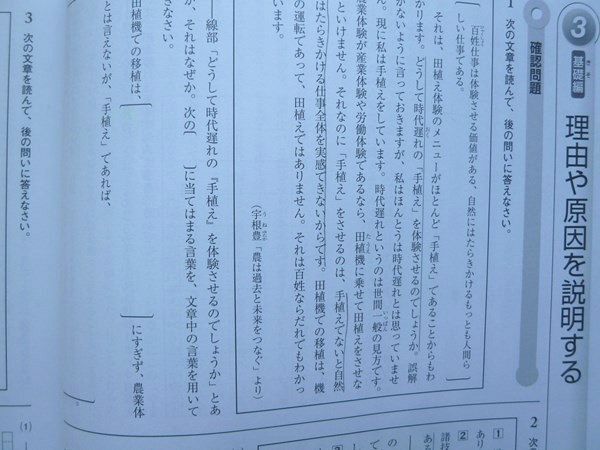 3
基礎編
きそ
理由や原因を説明する
確認問題
1 次の文章を読んで、後の問いに答えなさい。
百姓仕事は体験させる価値がある、自然にはたらきかけるもっとも人間ら
しい仕事である。
それは、田植え体験のメニューがほとんど「手植え」であることからもわ
かります。どうして時代遅れの「手植え」を体験させるのでしょうか。誤解
がないように言っておきますが、私はほんとうは時代遅れとは思っていませ
ん。現に私は手植えをしています。時代遅れというのは世間一般の見方です。
業体験が産業体験や労働体験であるなら、田植機に乗せて田植えをさせな
といけません。それなのに「手植え」をさせるのは、手植えでないと自然
はたらきかける仕事全体を実感できないからです。田植機での移植は、機
の運転であって、田植えではありません。それは百姓ならだれでもわかっ
います。
(宇根豊「農は過去と未来をつなぐ」より)
線部「どうして時代遅れの『手植え』を体験させるのでしょうか」とあ
が、それはなぜか。次の〔 〕に当てはまる言葉を、文章中の言葉を用いて
なさい。
田植機での移植は、〔 〕にすぎず、農業体
とは言えないが、「手植え」であれば、
3 次の文章を読んで、後の問いに答えなさい。
2 次の
1
あり
2
諸技
ある
(1)